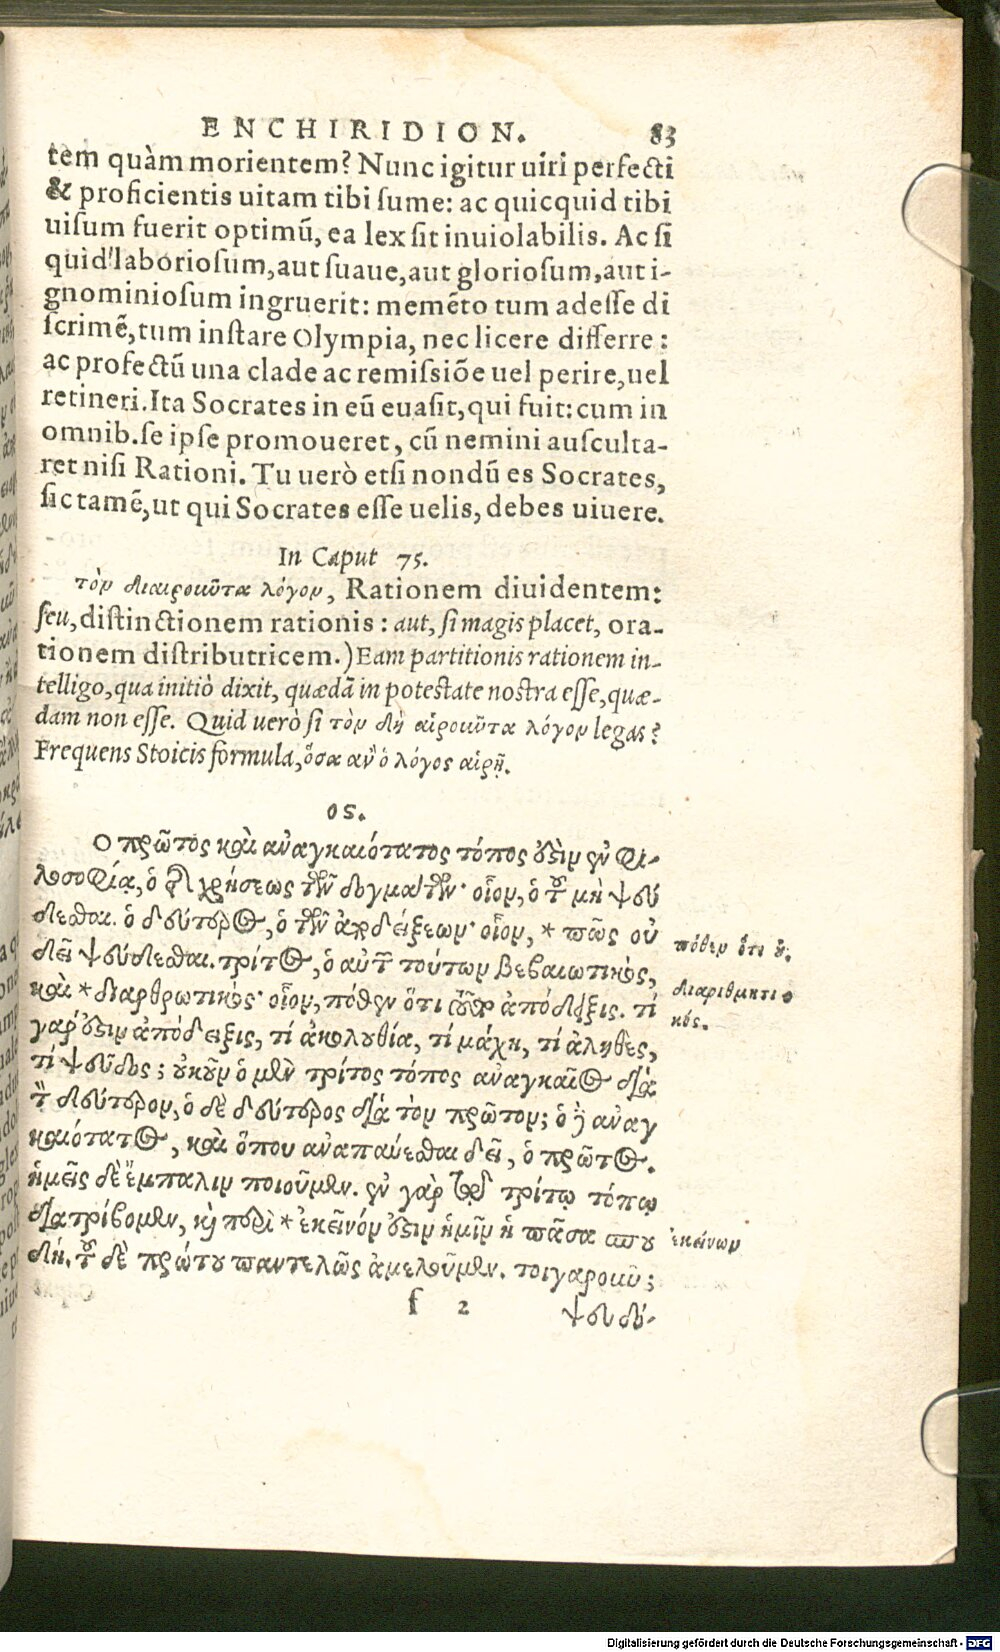 ENCHIRIDION. 83
tem quàm morientem? Nunc igitur uiri perfecti
& proficientis uitam tibi sume: ac quicquid tibi
uisum fuerit optimũ, ea lex sit inuiolabilis. Ac si
quid laboriosum, aut suaue, aut gloriosum, aut i-
gnominiosum ingruerit: memẽto tum adesse di
scrimẽ, tum instare Olympia, nec licere differre:
ac profectũ una clade ac remissiõe uel perire, uel
retineri. Ita Socrates in eũ euasit, qui fuit: cum in
omnib. se ipse promoueret, cũ nemini ausculta-
ret nisi Rationi. Tu uerò etsi nondũ es Socrates,
sic tamẽ, ut qui Socrates esse uelis, debes uiuere.
In Caput 75.
τὸν διαιροῦντα λόγον, Rationem diuidentem:
seu, distinctionem rationis: aut, si magis placet, ora-
tionem distributricem.) Eam partitionis rationem in-
telligo, qua initiò dixit, quædã in potestate nostra esse, quæ-
dam non esse. Quid uerò si τὸν δὴ αἱροῦντα λόγον legas?
Frequens Stoicis formula, ὅσα ἂν ὁ λόγος αἱρῇ.
ος.
Ο πρῶτος καὶ ἀναγκαιότατος τόπος ἐστὶν ἐν φι-
λοσοφίᾳ, ὁ τῆς χρήσεως τῶν δογμάτων· οἷον, ὁ τοῦ μὴ ψεύ
δεσθαι. ὁ δεύτερος, ὁ τῶν ἀποδείξεων· οἷον, * πῶς οὐ
δεῖ ψεύδεσθαι. τρίτος, ὁ αὐτῶν τούτων βεβαιωτικὸς,
καὶ * διαρθρωτικὸς· οἷον, πόθεν ὅτι τοῦτο ἀπόδειξις. τί
γάρ ἐστιν ἀπόδειξις, τί ἀκολουθία, τί μάχη, τί ἀληθὲς,
τί ψεῦδος; οὐκοῦν ὁ μὲν τρίτος τόπος ἀναγκαῖος διὰ
τὸν δεύτερον, ὁ δὲ δεύτερος διὰ τὸν πρῶτον; ὁ δὲ ἀναγ
καιότατος, καὶ ὅπου ἀναπαύεσθαι δεῖ, ὁ πρῶτος.
ἡμεῖς δὲ ἔμπαλιν ποιοῦμεν. ἐν γὰρ τῷ τρίτῳ τόπῳ
διατρίβομεν, καὶ περὶ * ἐκεῖνόν ἐστιν ἡμῖν ἡ πᾶσα σπου
δή. τοῦ δὲ πρώτου παντελῶς ἀμελοῦμεν. τοιγαροῦν;
πόθεν ὅτι οὐ.
διαριθμητι
κός.
ἐκείνων
f 2 ψευδό-
Digitalisierung gefördert durch die Deutsche Forschungsgemeinschaft - DFG